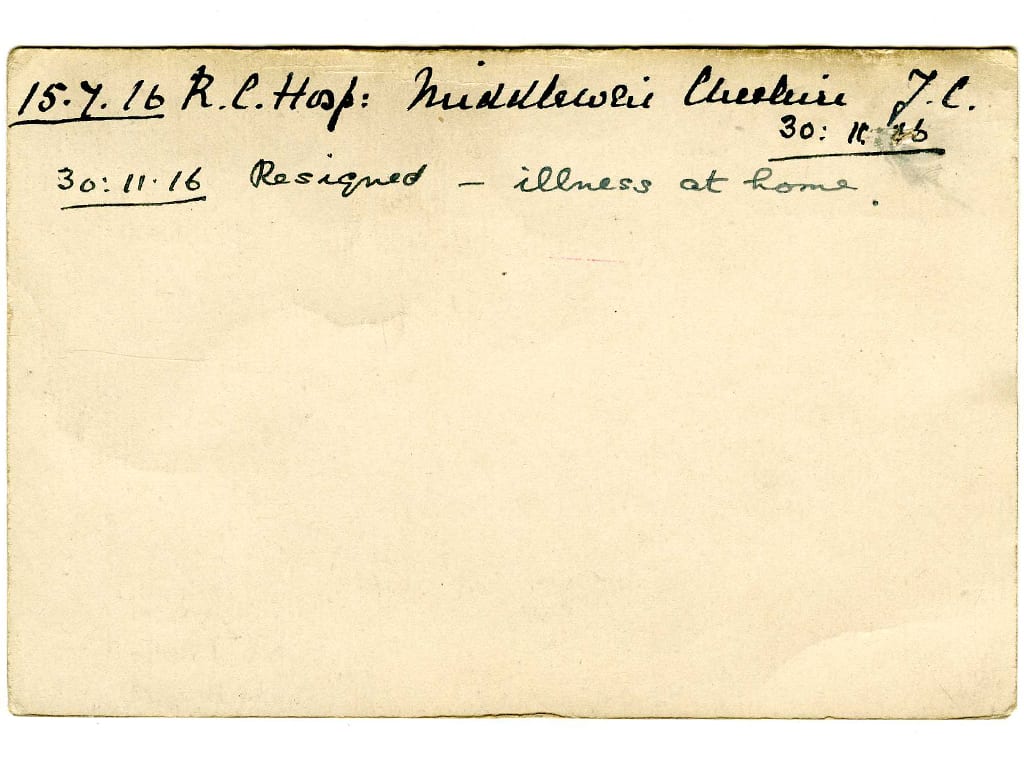 15.7.16 R.C. Hosp: Middlewich Cheshire T.C.
30: 11. 16
30: 11. 16 Resigned - illness at home.